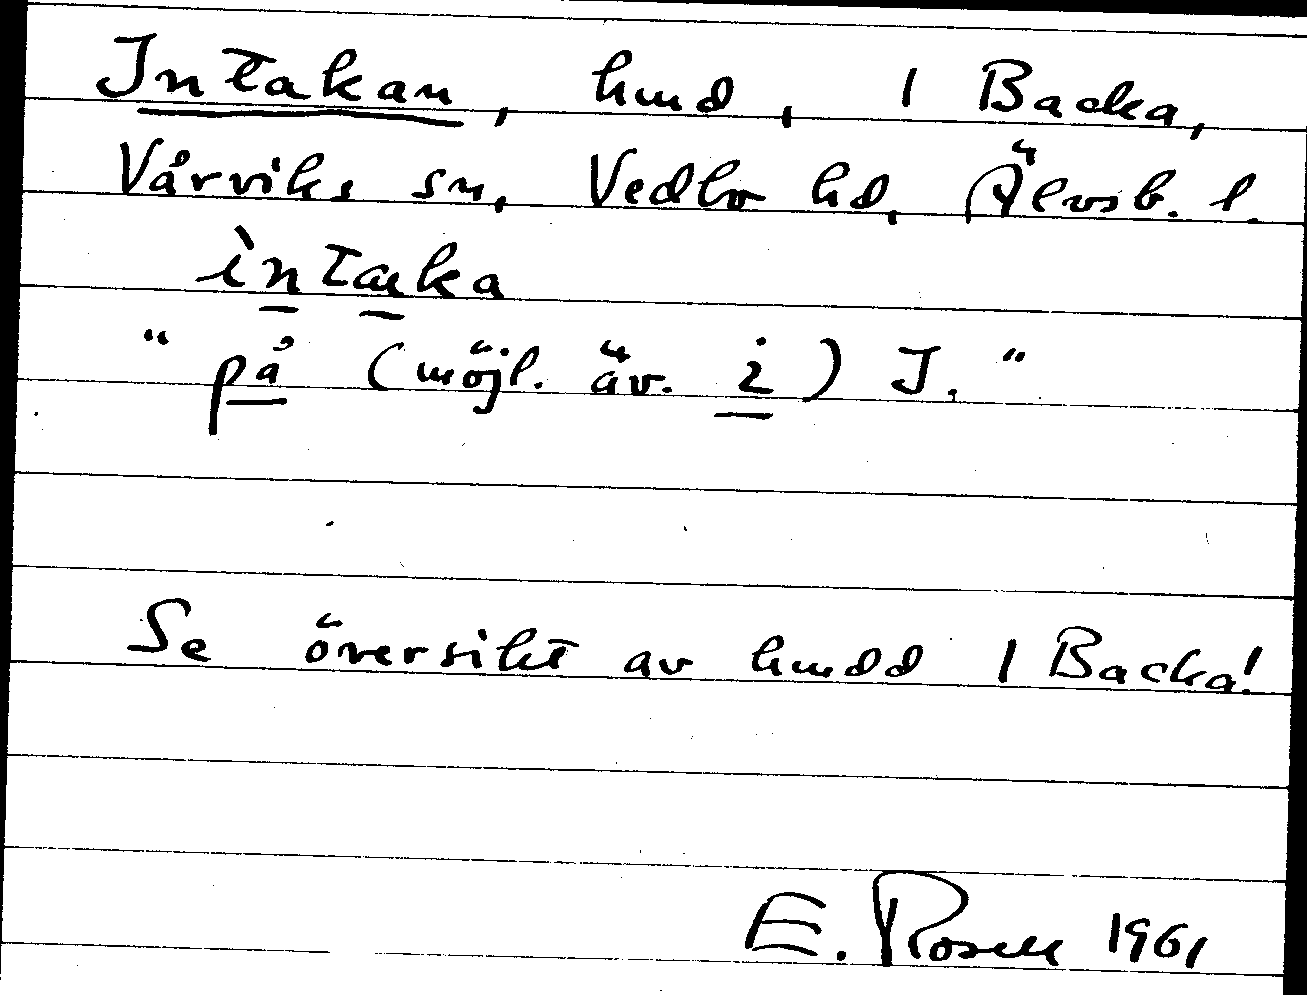 Intakan, hmd, 1 Backa,
Vårviks sn, Vedbo hd, Älvsb. l.
ìntaka
"på (möjl. äv. i) I."
Se översikt av hmdd 1 Backa!
E. Rosell 1961